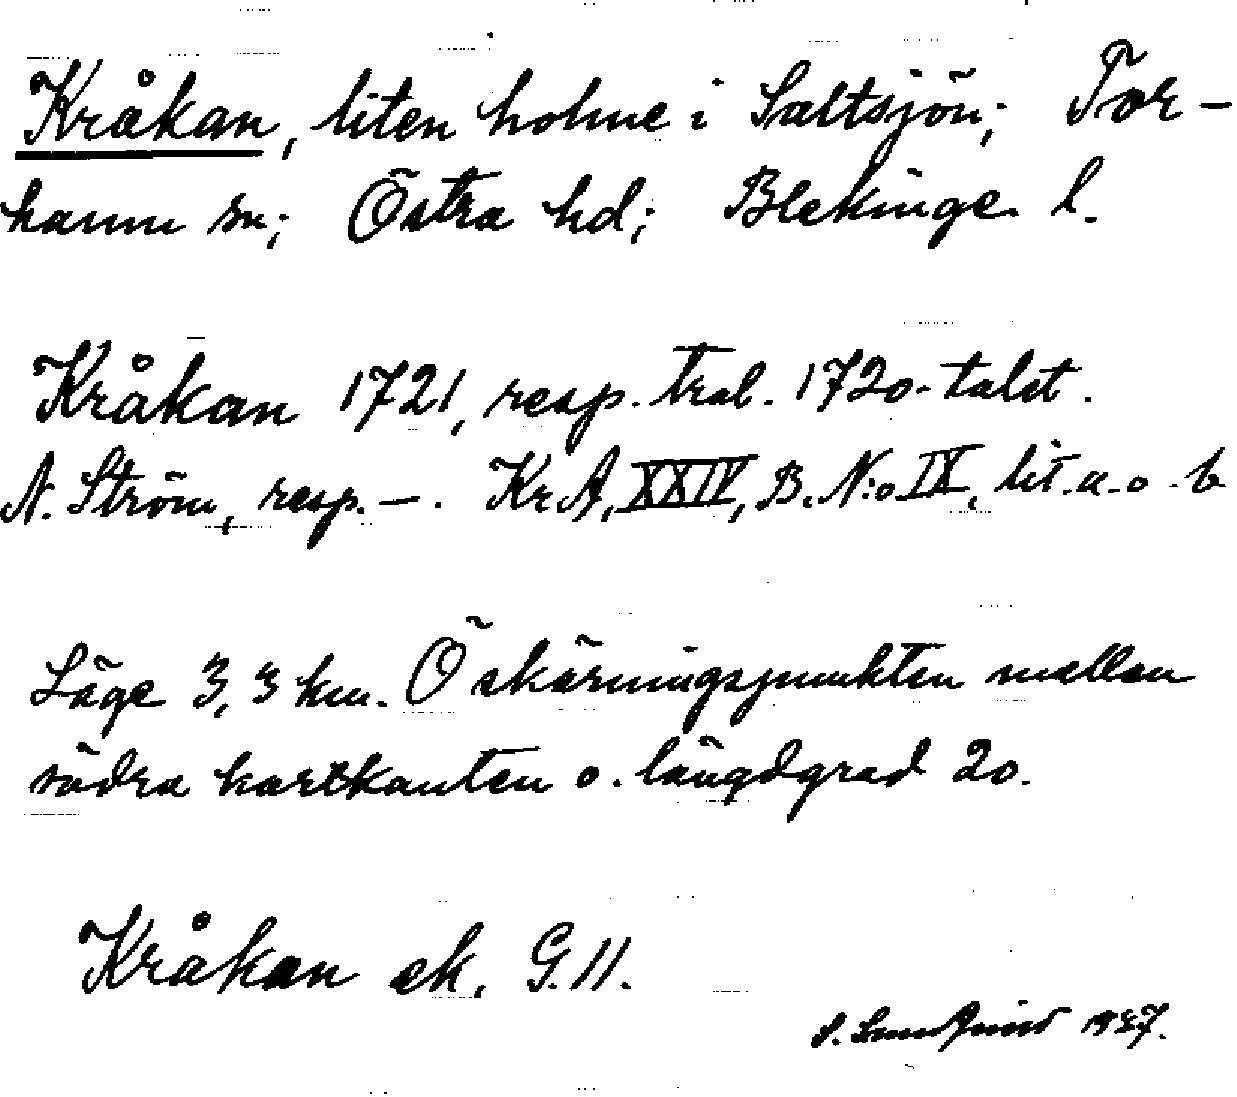 Kråkan, liten holme i Saltsjön; Tor-
hamn sn; Östra hd; Blekinge l.
Kråkan 1721, resp. tral. 1720-talet.
N. Ström, resp. —. KrA, XXIV, B. N:o IX, lit. a. o. b
Läge 3,3 km. Ö skärningspunkten mellan
södra kartkanten o. längdgrad 20.
Kråkan ek. G.11.
S. 1937.